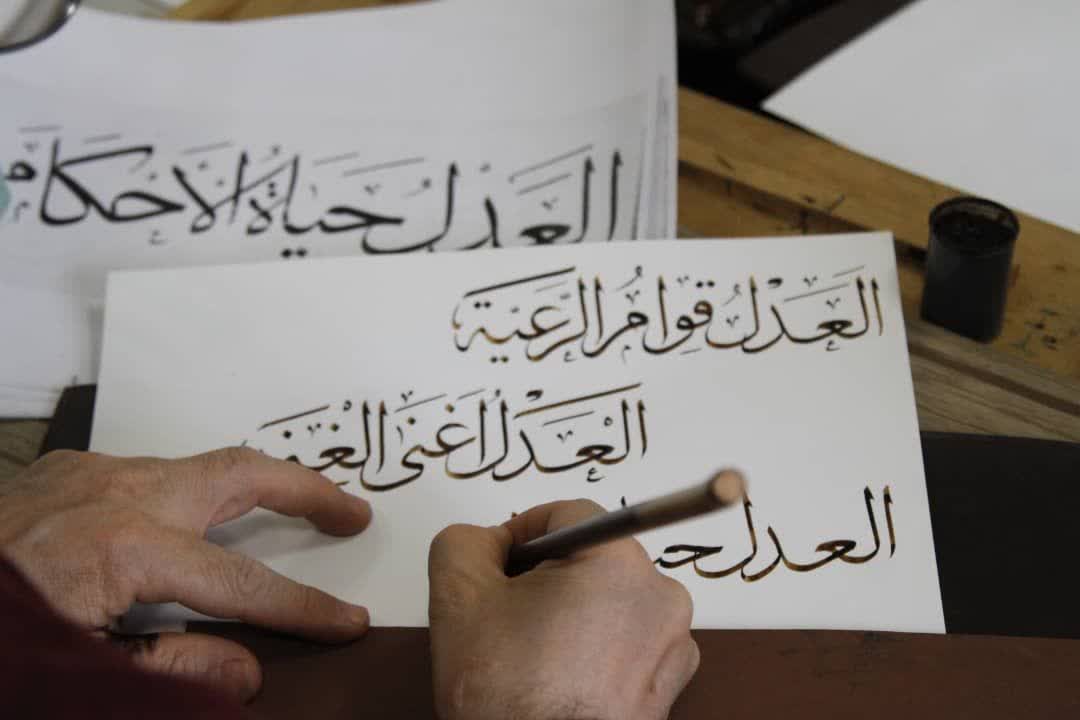 العَدْلُ حَيَاةُ الْأَحْكَامِ
العَدْلُ قِوَامُ الرَّعِيَّةِ
العَدْلُ أَغْنَى
العدل